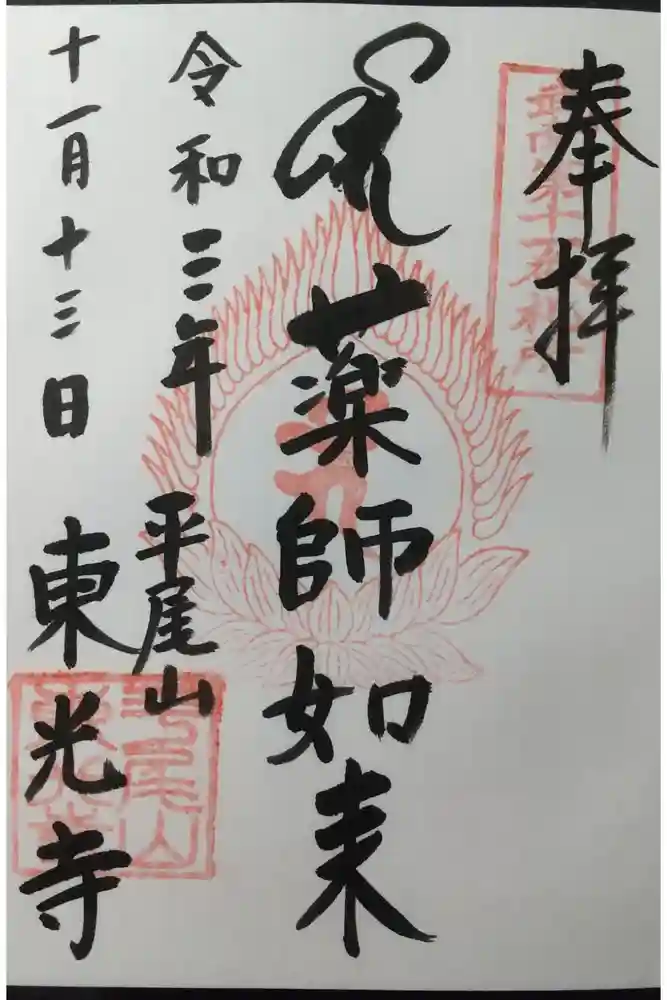 奉拝
薬師如来
令和三年
平尾山
十一月十三日
東光寺
平尾山
東光寺